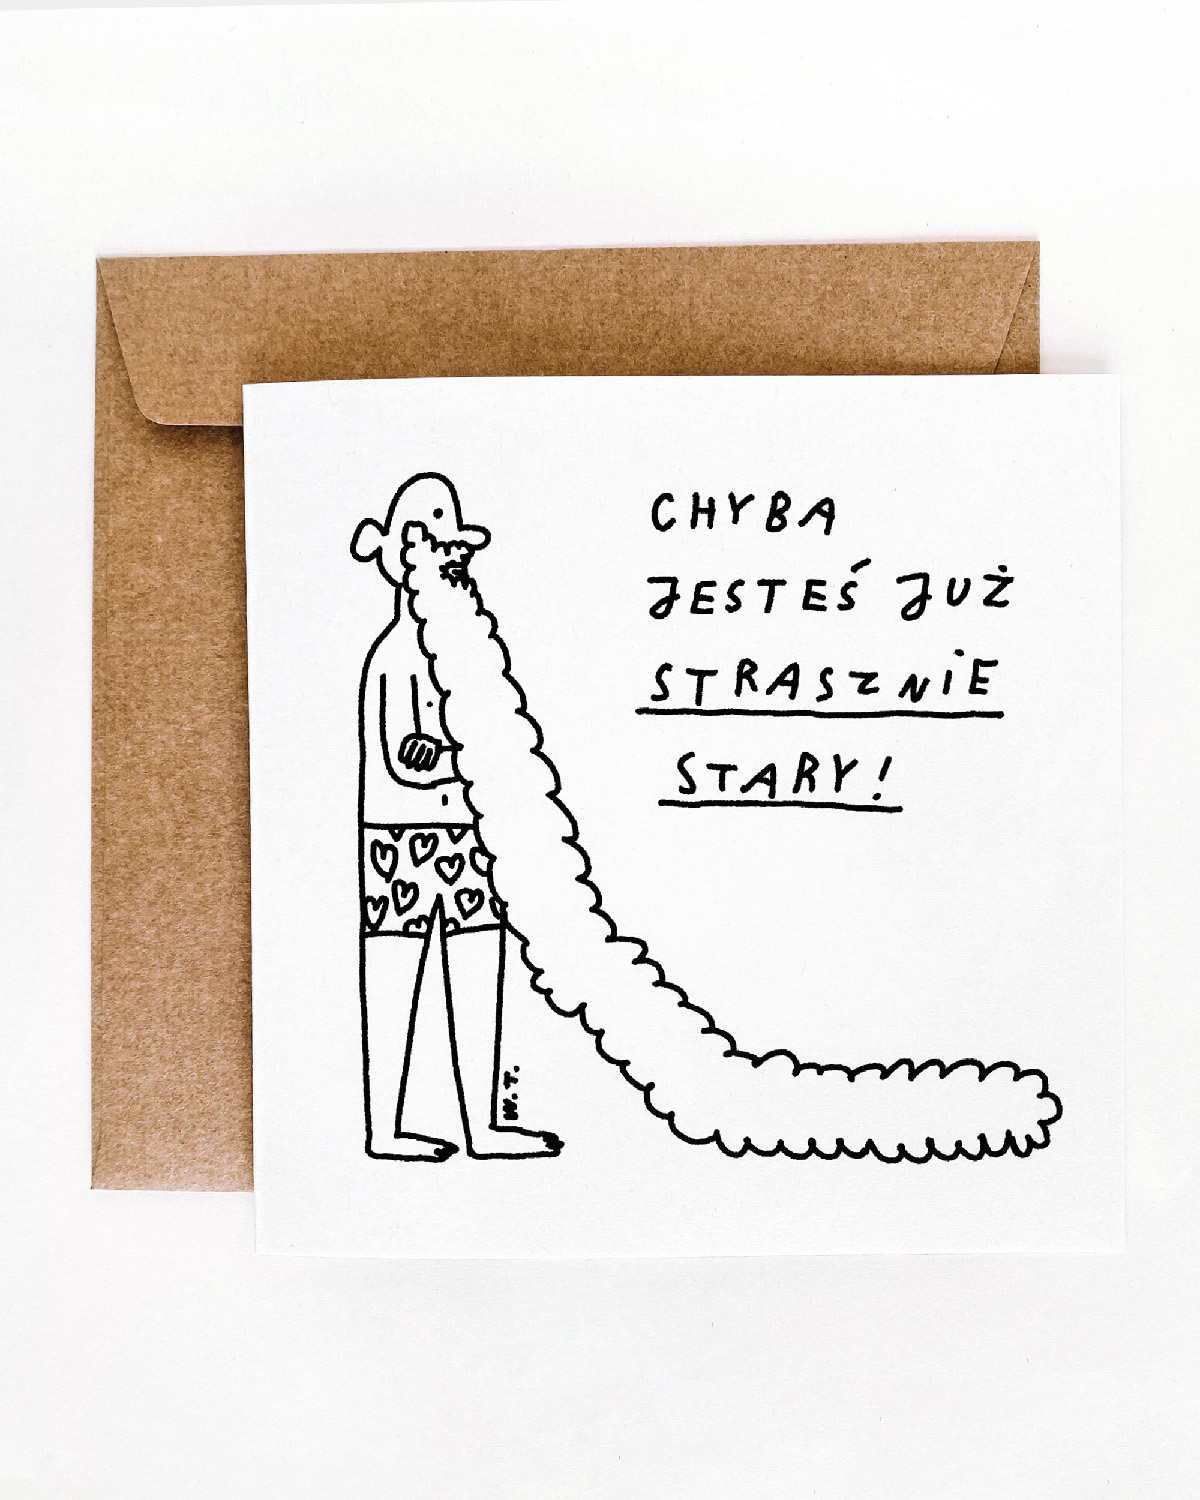 CHYBA
JESTEŚ JUŻ
STRASZNIE
STARY!
W.T.